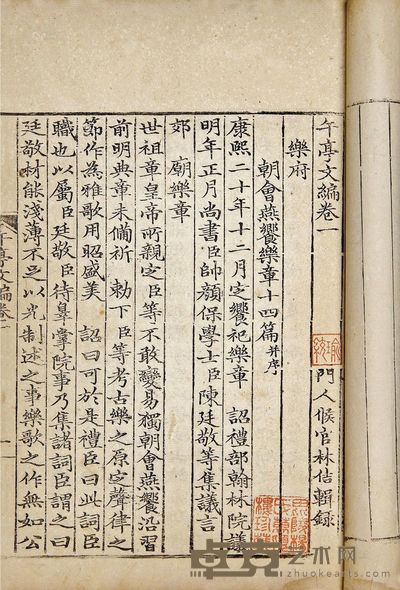 午亭文編卷一
門人候官林佶輯錄
樂府
朝會燕饗樂章十四篇 并序
康熙二十年十二月定饗祀樂章 詔禮部翰林院議
明年正月尚書臣帥顏保學士臣陳廷敬等集議言
郊 廟樂章
世祖章皇帝所親定臣等不敢變易獨朝會燕饗沿習
前明典章未備祈 勅下臣等考古樂之原定聲律之
節作為雅歌用昭盛美 詔曰可於是禮臣曰此詞臣
職也以屬臣廷敬待辠掌院事乃集諸詞臣謂之曰
廷敬材能淺薄不足以充制述之事樂歌之作無如公
午亭文編卷一
一
卓克艺术网
zhuokearts.com